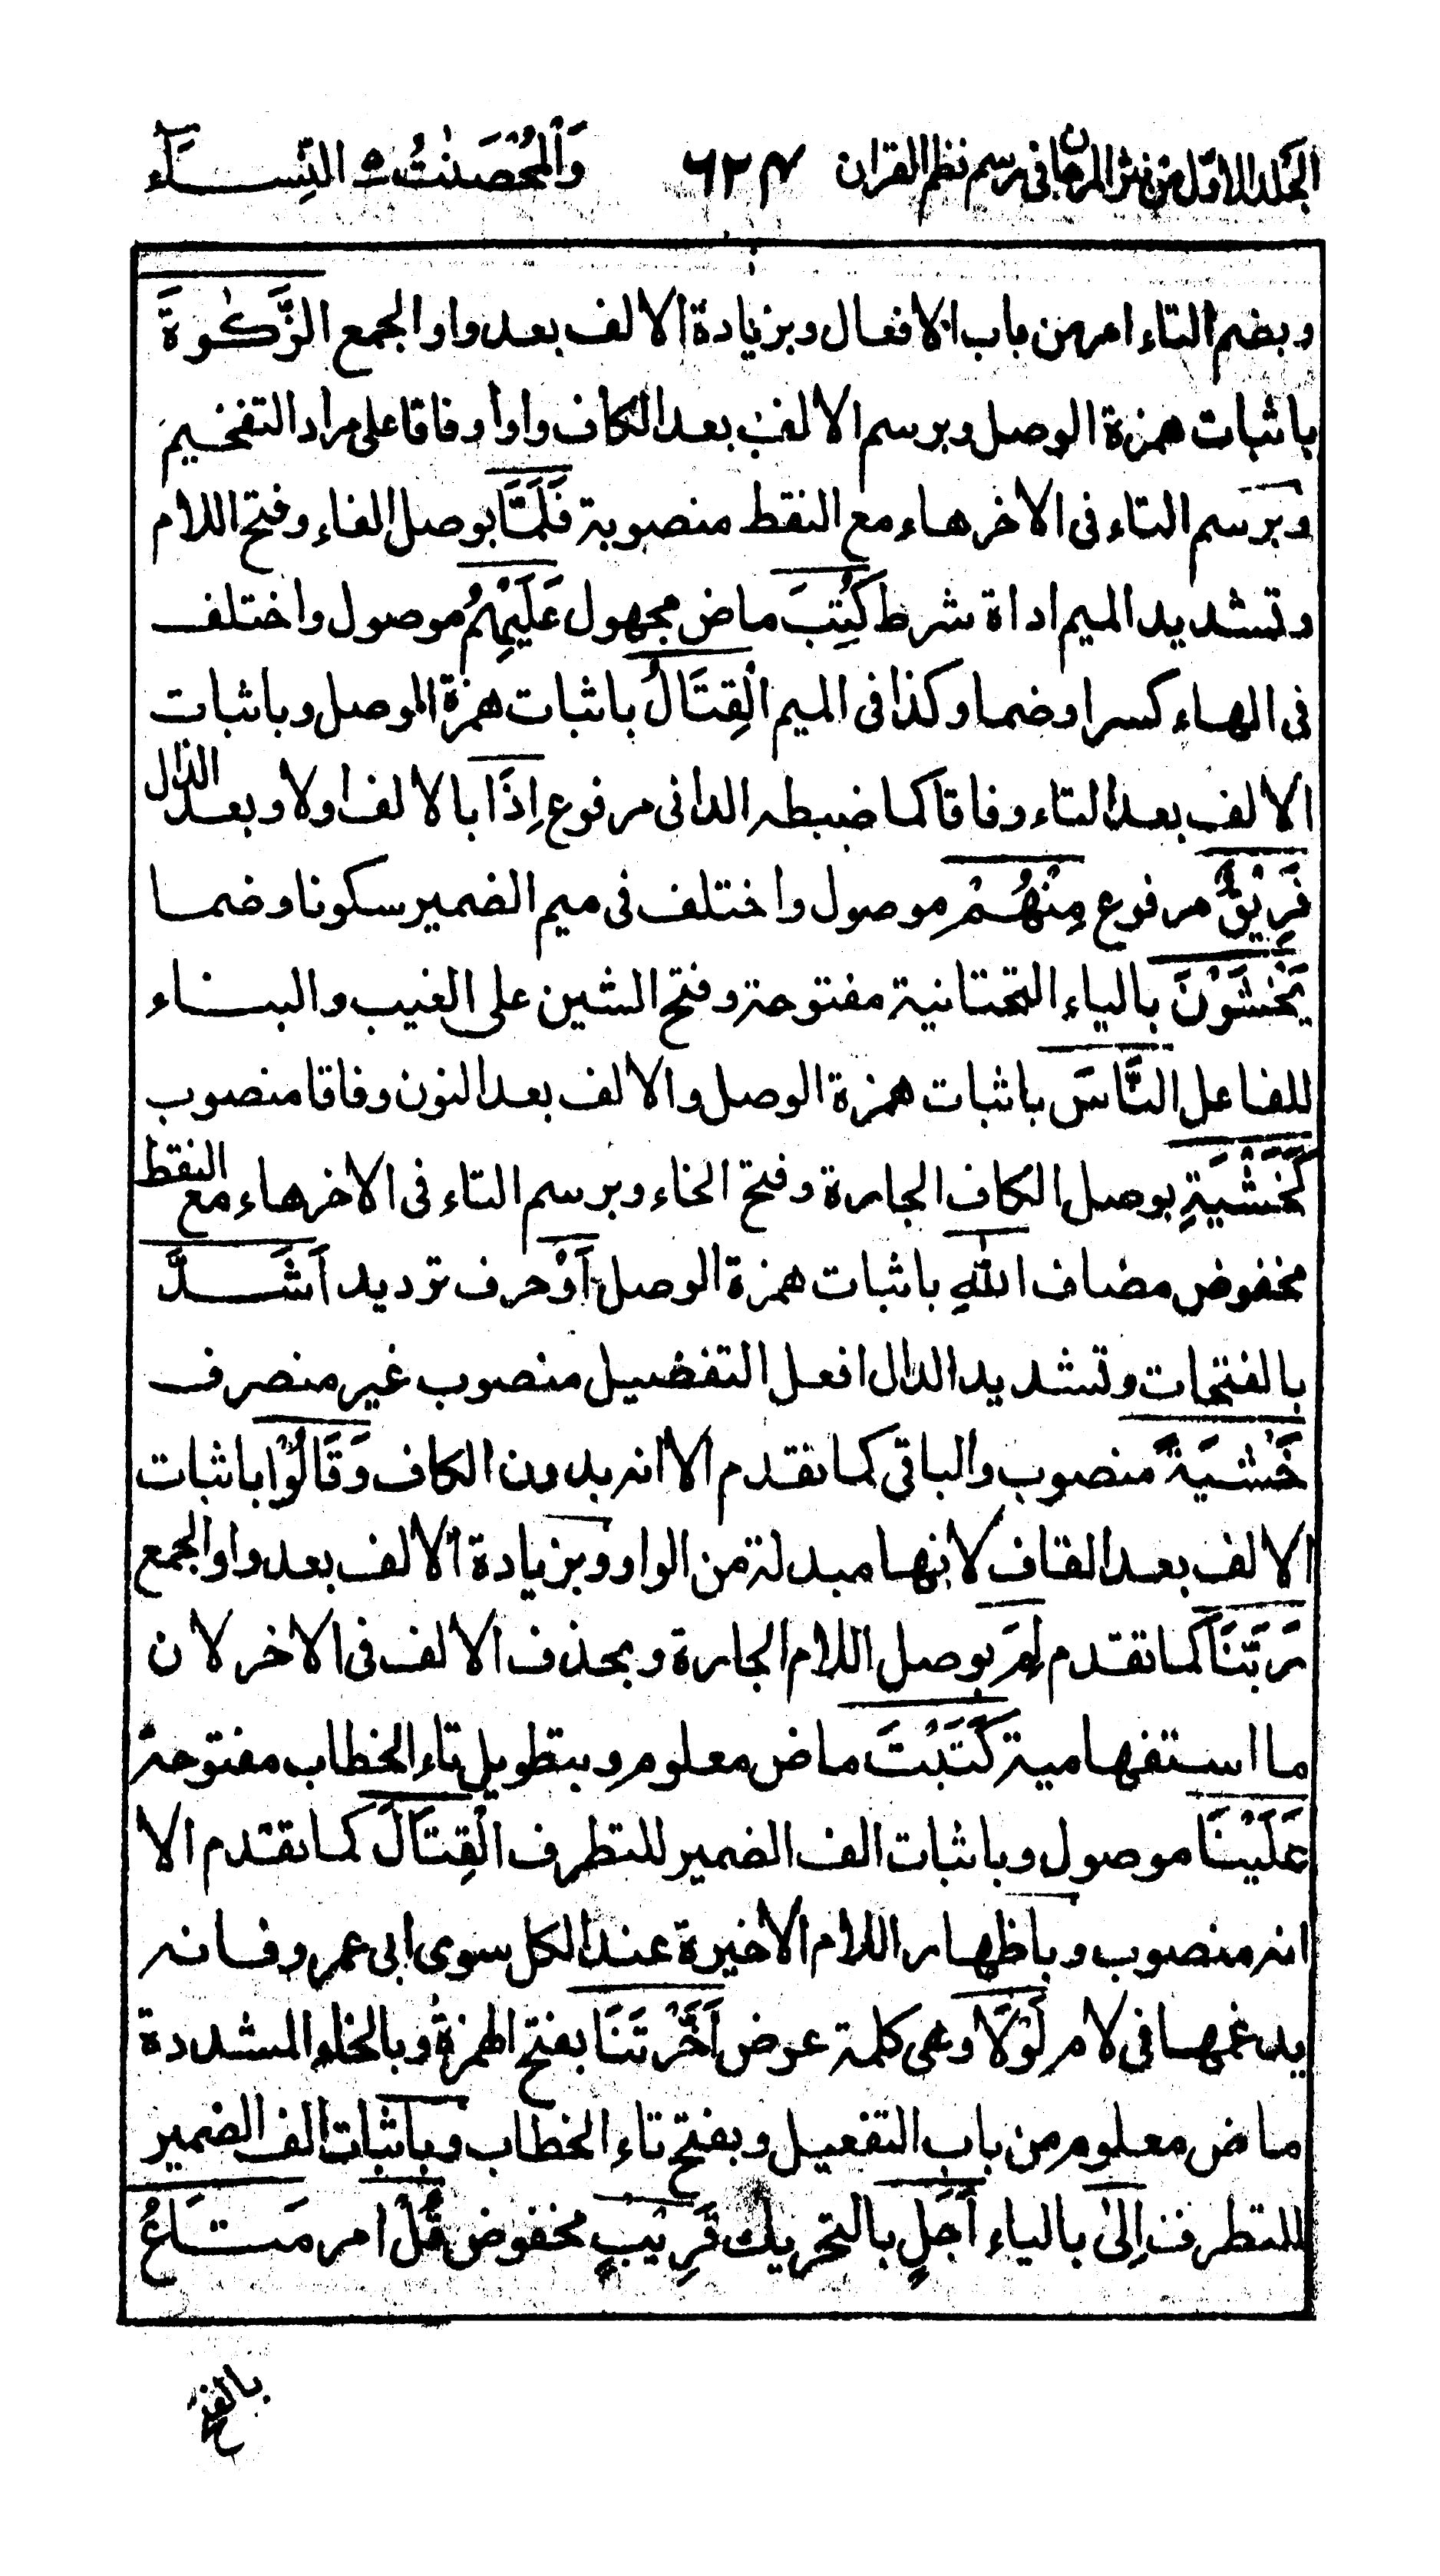 الجلد الاول من نثر المرجان فى رسم نظم القران ٦٢٤ وَالْمُحْصَنٰتُ ٥ النِّسَاء
وبضم التاء امر من باب الافعال وبزيادة الالف بعد واو الجمع الزَّكٰوةَ
باثبات همزة الوصل وبرسم الالف بعد الكاف واوا وفاقا على مراد التفخيم
وبرسم التاء فى الاخر هاء مع النقط منصوبة فَلَمَّا بوصل الفاء وفتح اللام
وتشديد الميم اداة شرط كُتِبَ ماض مجهول عَلَيْهِمُ موصول واختلف
فى الهاء كسرا وضما وكذا فى الميم الْقِتَالُ باثبات همزة الوصل وباثبات
الالف بعد التاء وفاقا كما ضبطه الدانى مرفوع اِذَا بالالف اولا وبعد الذال
فَرِيْقٌ مرفوع مِنْهُمْ موصول واختلف فى ميم الضمير سكونا وضما
يَخْشَوْنَ بالياء التحتانية مفتوحة وفتح الشين على الغيب والبناء
للفاعل النَّاسَ باثبات همزة الوصل والالف بعد النون وفاقا منصوب
كَخَشْيَةِ بوصل الكاف الجارة وفتح الخاء وبرسم التاء فى الاخر هاء مع النقط
مخفوض مضاف اللّٰهِ باثبات همزة الوصل اَوْ حرف ترديد اَشَدَّ
بالفتحات وتشديد الدال افعل التفضيل منصوب غير منصرف
خَشْيَةً منصوب والباقى كما تقدم الا انه بدون الكاف وَقَالُوْا باثبات
الالف بعد القاف لانها مبدلة من الواو وبزيادة الالف بعد واو الجمع
رَبَّنَا كما تقدم لِمَ بوصل اللام الجارة وبحذف الالف فى الاخر لان
ما استفهامية كَتَبْتَ ماض معلوم وبتطويل تاء الخطاب مفتوحة
عَلَيْنَا موصول وباثبات الف الضمير للتطرف الْقِتَالَ كما تقدم الا
انه منصوب وباظهار اللام الاخيرة عند الكل سوى ابى عمرو فانه
يدغمها فى لام لَوْلَا وهى كلمة عرض اَخَّرْتَنَا بفتح الهمزة وبالخاء المشددة
ماض معلوم من باب التفعيل وبفتح تاء الخطاب وباثبات الف الضمير
للتطرف اِلٰى بالياء اَجَلٍ بالتحريك قَرِيْبٍ مخفوض قُلْ امر مَتَاعُ
بالفتح